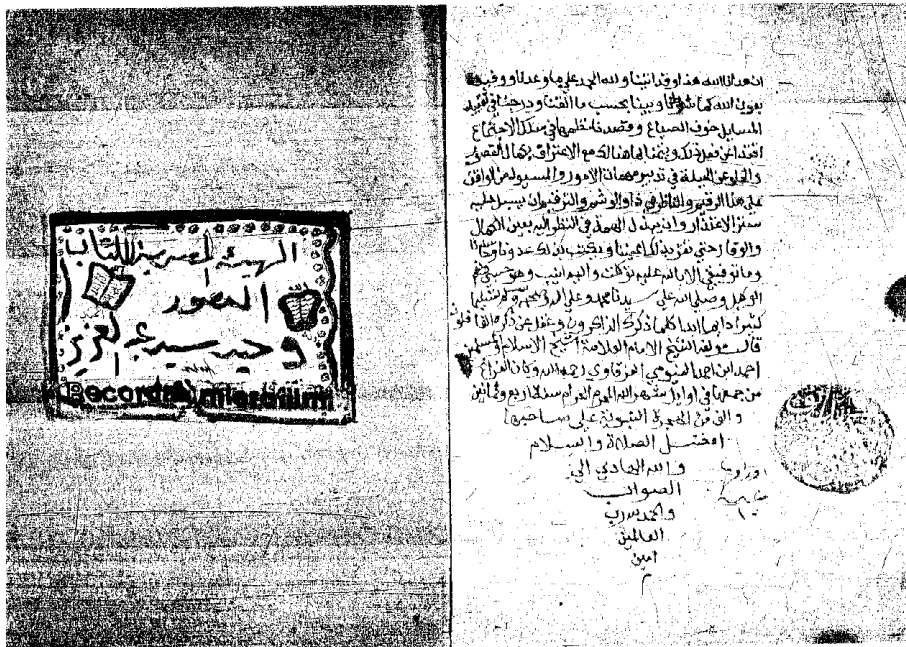 الهيئة المصرية للكتاب
المصور
وحيد سيد عبد العزيز
Records microfilm
ان هدانا الله هذا وقد اتينا ولله الحمد على ما وعدنا ووفينا
بعون الله كما وبينا بحسب ما الفنا ودرجنا في تقييد
المسايل خوف الضياع وقصدنا نظمها في سلك الاجتماع
ذلك هنالك مع الاعتراف بكمال القصور
في تدبير مهمات الامور والمسيول من الواقف
على هذا الرقيم والناظر في ذا الوشي والترقيم ان يسبل عليه
ستر الاعتذار وان يبذل الهمة في النظر اليه بعين الكمال
والوقار حتى بذلك
وما توفيقي الا بالله عليه توكلت واليه انيب وهو حسبي ونعم
الوكيل وصلى الله على سيدنا محمد وعلى اله وصحبه وسلم تسليما
كثيرا دايما ابدا كلما ذكرك الذاكرون وغفل عن ذكره الغافلون
قال مولفه الشيخ الامام العلامة شيخ الاسلام والمسلمين
احمد ابن احمد الفيومي الغرقاوي رحمه الله وكان الفراغ
من جمعها في اوايل شهر الله المحرم الحرام سنة اربع وثمانين
والف من الهجرة النبوية على صاحبها
افضل الصلاة والسلام
والله الهادي الى
الصواب
والحمد لله رب
العالمين
امين
م